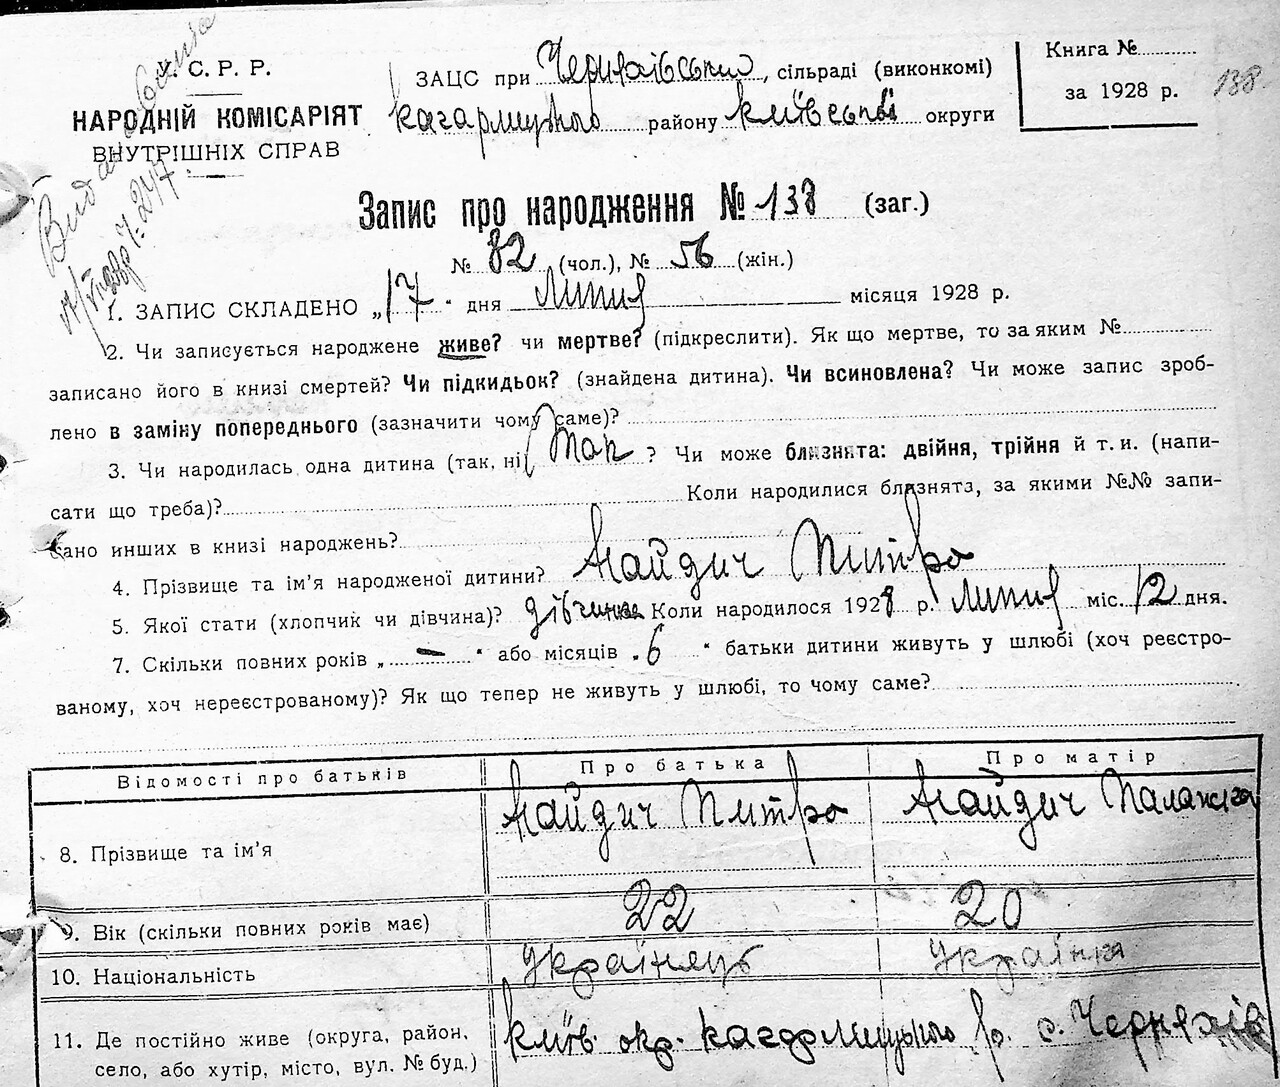 У. С. Р. Р.
НАРОДНІЙ КОМІСАРІЯТ
ВНУТРІШНІХ СПРАВ
ЗАЦС при Черняхівський, сільраді (виконкомі)
Кагарлицького району Київської округи
Книга №
за 1928 р.
138
Запис про народження № 138 (заг.)
№ 82 (чол.), № 56 (жін.)
1. ЗАПИС СКЛАДЕНО „17“ дня Липня місяця 1928 р.
2. Чи записується народжене живе? чи мертве? (підкреслити). Як що мертве, то за яким №
записано його в книзі смертей? Чи підкидьок? (знайдена дитина). Чи всиновлена? Чи може запис зроб-
лено в заміну попереднього (зазначити чому саме)?
3. Чи народилась одна дитина (так, ні) Так ? Чи може близнята: двійня, трійня й т. и. (напи-
сати що треба)? Коли народилися близнята, за якими №№ запи-
сано инших в книзі народжень?
4. Прізвище та ім’я народженої дитини? Найдич Митро
5. Якої стати (хлопчик чи дівчина)? дівчинка Коли народилося 1928 р. Липня міс. 12 дня.
7. Скільки повних років „ — “ або місяців „ 6 “ батьки дитини живуть у шлюбі (хоч реєстро-
ваному, хоч нереєстрованому)? Як що тепер не живуть у шлюбі, то чому саме?
Відомості про батьків Про батька Про матір
8. Прізвище та ім’я Найдич Митро Найдич Палажка
9. Вік (скільки повних років має) 22 20
10. Національність Українець Українка
11. Де постійно живе (округа, район,
село, або хутір, місто, вул. № буд.) Київ. окр. Кагарлицького р. с. Черняхів